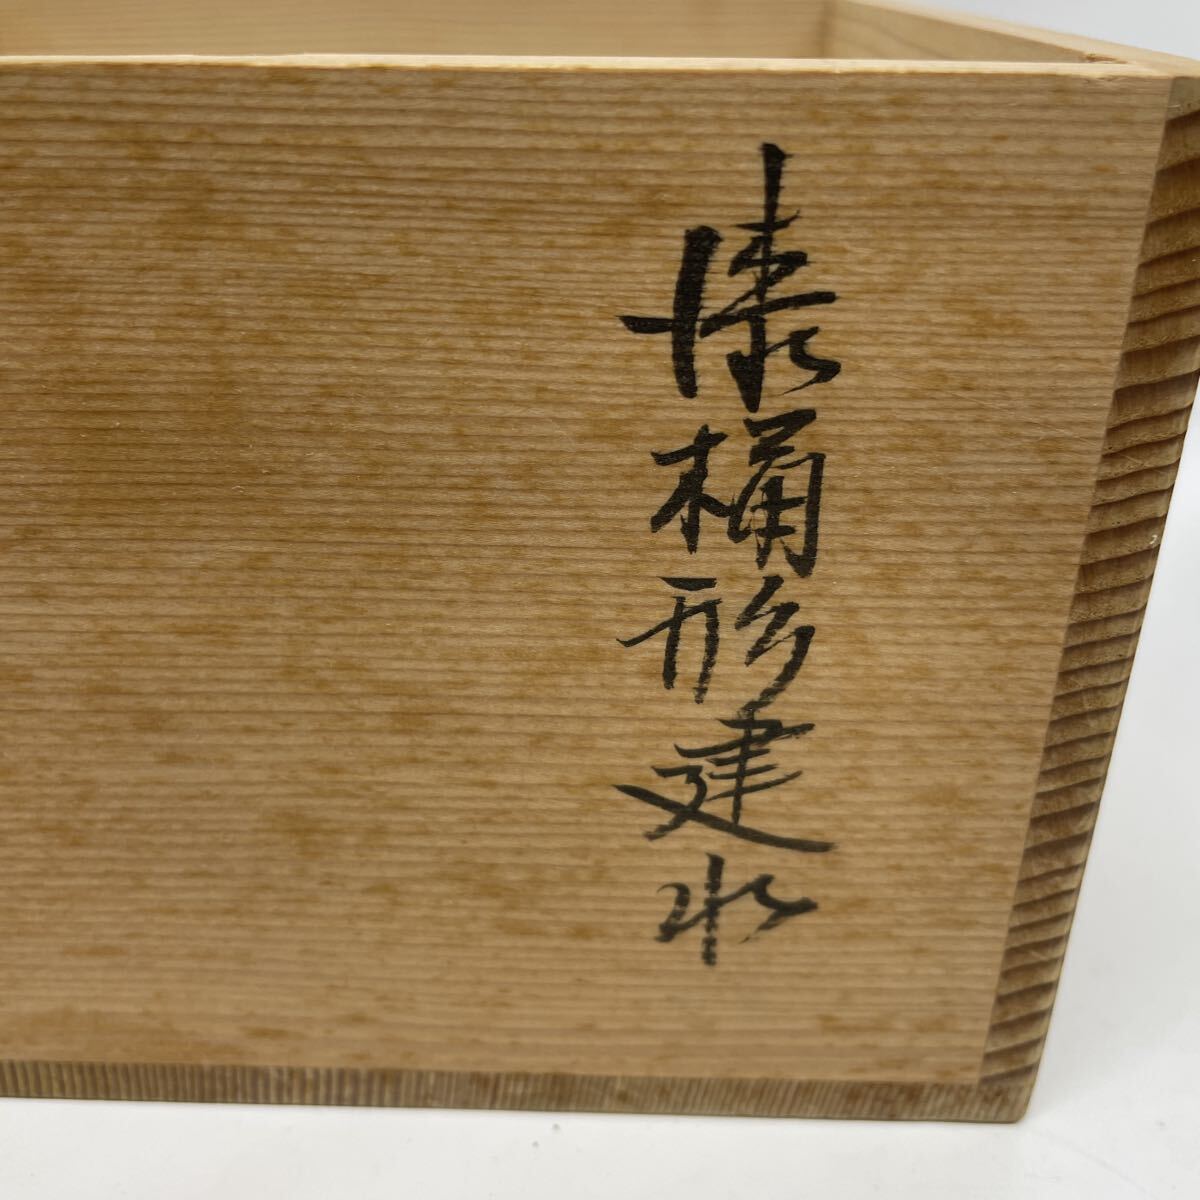 漆桶形建水